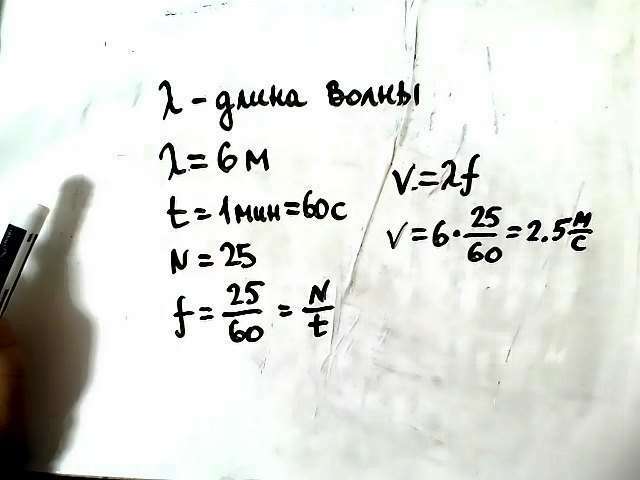 λ - длина волны
λ = 6 м
t = 1 мин = 60 с
N = 25
f = 25/60 = N/t
V = λf
V = 6 · 25/60 = 2.5 м/с